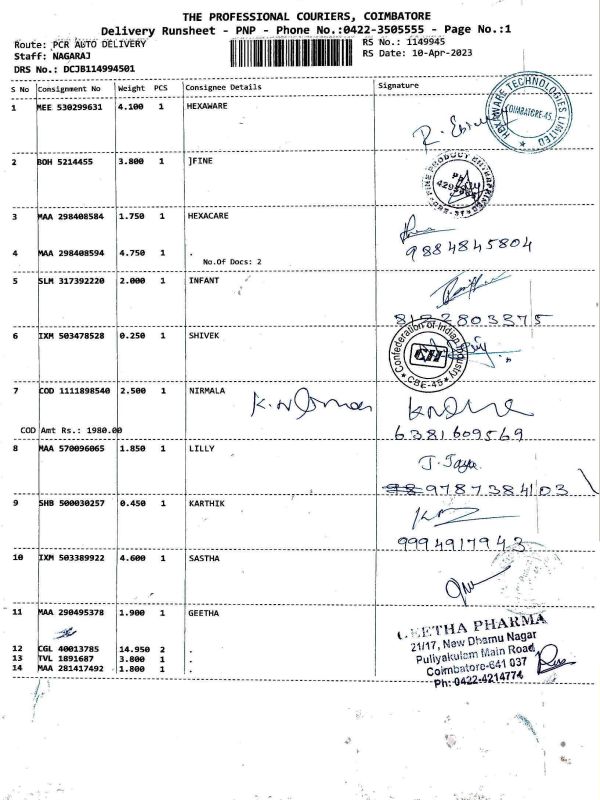 THE PROFESSIONAL COURIERS, COIMBATORE
Delivery Runsheet - PNP - Phone No.:0422-3505555 - Page No.:1
Route: PCR AUTO DELIVERY RS No.: 1149945
Staff: NAGARAJ RS Date: 10-Apr-2023
DRS No.: DCJB114994501
S No Consignment No Weight PCS Consignee Details Signature
1 MEE 530299631 4.100 1 HEXAWARE
HEXAWARE TECHNOLOGIES LIMITED
COIMBATORE-45
2 BOH 5214455 3.800 1 ]FINE
FINE PRODUCT ENTERPRISES
3 MAA 298408584 1.750 1 HEXACARE
4 MAA 298408594 4.750 1 . 9884845804
No.Of Docs: 2
5 SLM 317392220 2.000 1 INFANT
8122803375
6 IXM 503478528 0.250 1 SHIVEK
Confederation of Indian Industry
CII
CBE-45
7 COD 1111898540 2.500 1 NIRMALA
COD Amt Rs.: 1980.00 6381609569
8 MAA 570096065 1.850 1 LILLY
J. Jaya
9787384103
9 SHB 500030257 0.450 1 KARTHIK
9994917943
10 IXM 503389922 4.600 1 SASTHA
11 MAA 290495378 1.900 1 GEETHA
GEETHA PHARMA
21/17, New Dhamu Nagar
12 CGL 40013785 14.950 2 . Puliyakulam Main Road,
13 TVL 1891687 3.800 1 . Coimbatore-641 037
14 MAA 281417492 1.800 1 . Ph: 0422-4214774